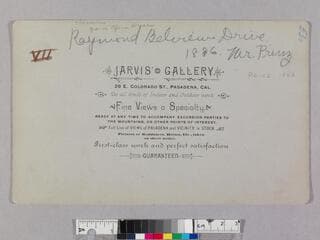 Raymond Belvieu Drive
1886. Mr.
VII
JARVIS' GALLERY,
20 E. COLORADO ST., PASADENA, CAL.
Do all kinds of Indoor and Outdoor work
Fine Views a Specialty.
READY AT ANY TIME TO ACCOMPANY EXCURSION PARTIES TO
THE MOUNTAINS, OR OTHER POINTS OF INTEREST.
Full Line of VIEWS of PASADENA and VICINITY in STOCK.
Pictures of Residences, Horses, Etc., taken
on short notice.
First-class work and perfect satisfaction
GUARANTEED